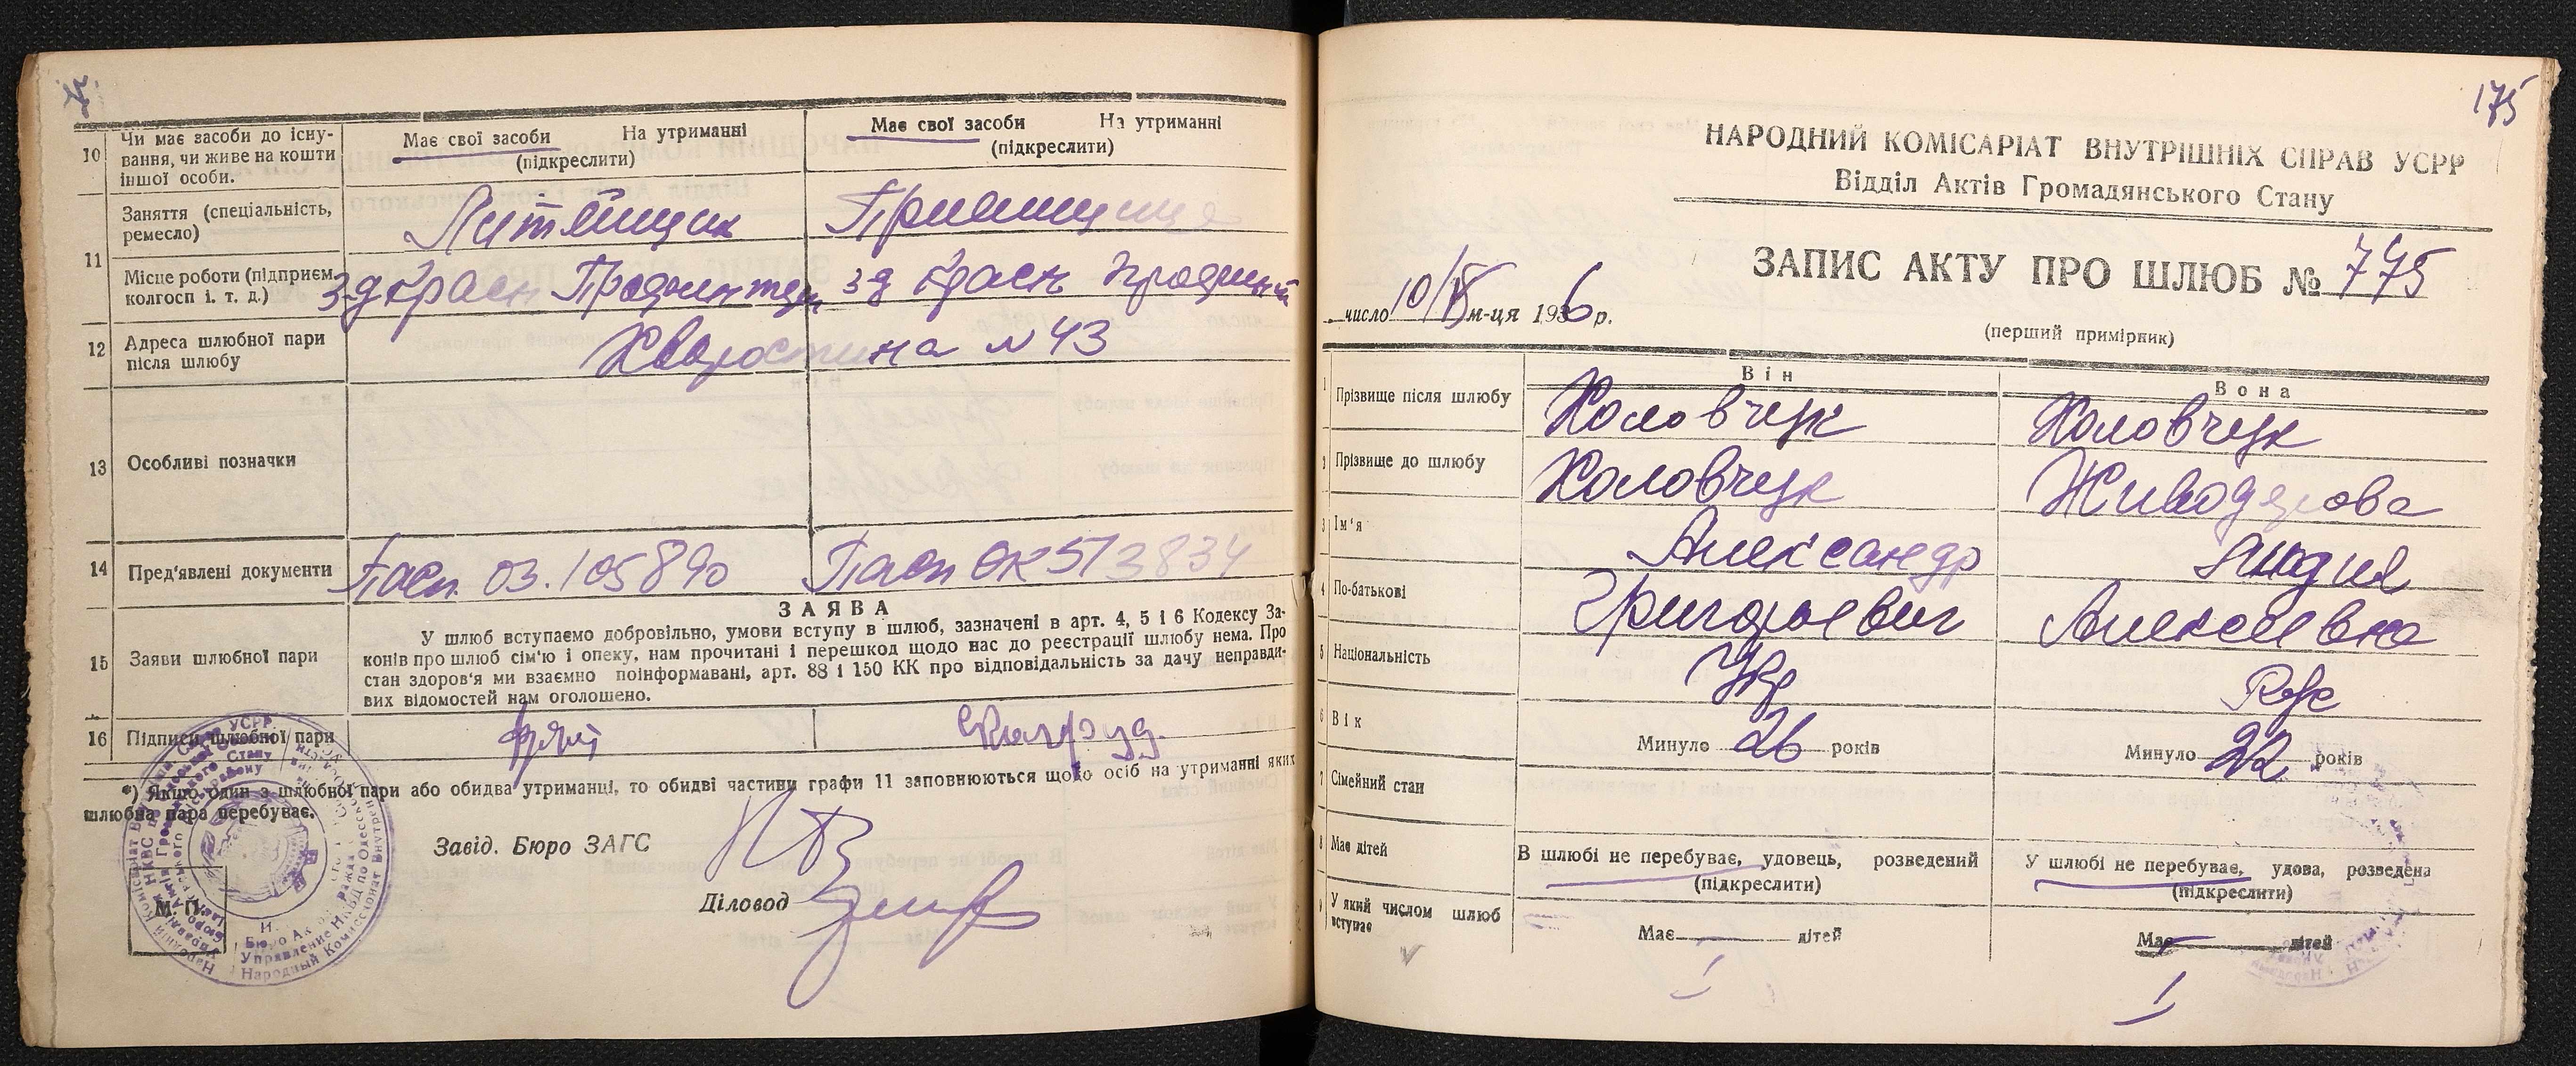 10 Чи має засоби до існування, чи живе на кошти іншої особи. Має свої засоби На утриманні (підкреслити) Має свої засоби На утриманні (підкреслити)
11 Заняття (спеціальність, ремесло)
Місце роботи (підприєм. колгосп і. т. д.) зд Красн зд Красн
12 Адреса шлюбної пари після шлюбу Хворостина № 43
13 Особливі позначки
14 Пред'явлені документи Пасп. 03.105890 Пасп ОК 513834
ЗАЯВА
15 Заяви шлюбної пари
У шлюб вступаємо добровільно, умови вступу в шлюб, зазначені в арт. 4, 5 і 6 Кодексу За-
конів про шлюб сім'ю і опеку, нам прочитані і перешкод щодо нас до реєстрації шлюбу нема. Про
стан здоров'я ми взаємно поінформавані, арт. 88 і 150 КК про відповідальність за дачу неправди-
вих відомостей нам оголошено.
16 Підписи шлюбної пари
*) Якщо один з шлюбної пари або обидва утриманці, то обидві частини графи 11 заповнюються щодо осіб на утриманні яких
шлюбна пара перебуває.
Завід. Бюро ЗАГС
Діловод
М. П.
175
НАРОДНИЙ КОМІСАРІАТ ВНУТРІШНІХ СПРАВ УСРР
Відділ Актів Громадянського Стану
ЗАПИС АКТУ ПРО ШЛЮБ № 775
число 10/ м-ця 1936 р.
(перший примірник)
Він Вона
1 Прізвище після шлюбу Холовчук Холовчук
2 Прізвище до шлюбу Холовчук
3 Ім'я Александр Лидия
4 По-батькові Григорьевич Алексеевна
5 Національність Укр Рус
6 Вік Минуло 26 років Минуло 22 років
7 Сімейний стан
8 Має дітей В шлюбі не перебуває, удовець, розведений (підкреслити) У шлюбі не перебуває, удова, розведена (підкреслити)
9 У який числом шлюб вступає Має дітей Має дітей
I I